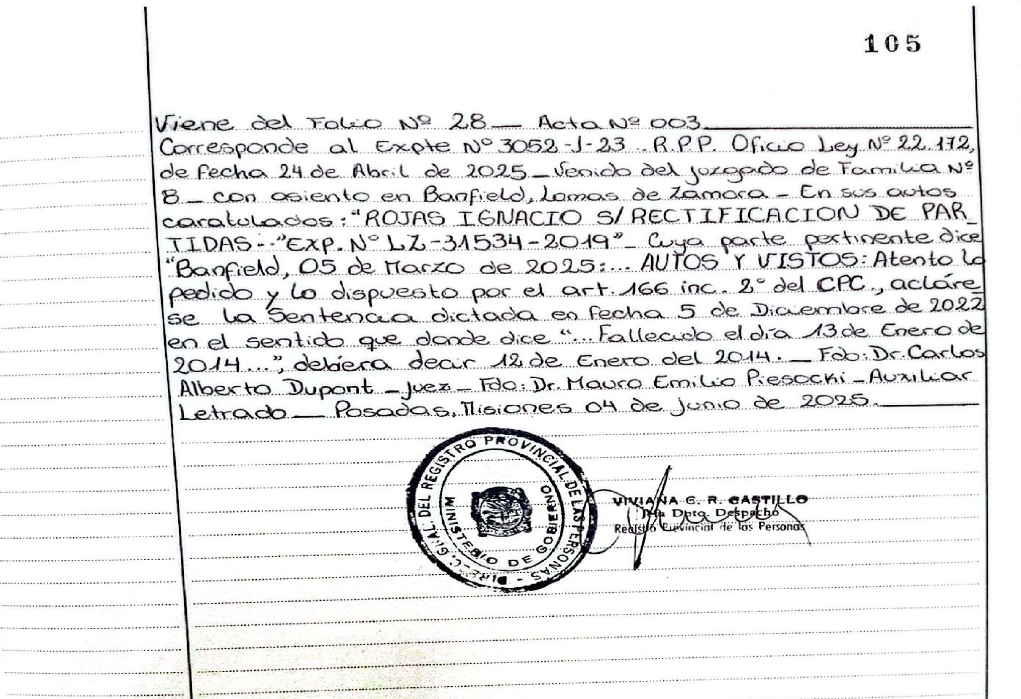 105
Viene del Folio Nº 28 — Acta Nº 003
Corresponde al Expte Nº 3052-J-23 - R.P.P. Oficio Ley Nº 22.172,
de fecha 24 de Abril de 2025 - Venido del juzgado de Familia Nº
8 - con asiento en Banfield, Lomas de Zamora - En sus autos
caratulados: "ROJAS IGNACIO S/ RECTIFICACION DE PAR_
TIDAS -"EXP. Nº LZ-31534-2019"- Cuya parte pertinente dice
"Banfield, 05 de Marzo de 2025:... AUTOS Y VISTOS: Atento lo
pedido y lo dispuesto por el art. 166 inc. 2º del CPC., acláre_
se la Sentencia dictada en fecha 5 de Diciembre de 2022
en el sentido que donde dice "... Fallecido el día 13 de Enero de
2014...", debiera decir 12 de Enero del 2014. — Fdo: Dr. Carlos
Alberto Dupont - Juez - Fdo: Dr. Mauro Emilio Piesocki - Auxiliar
Letrado — Posadas, Misiones 04 de Junio de 2025.
DIRE-C. GRAL DEL REGISTRO PROVINCIAL DE LAS PERSONAS -
MINISTERIO DE GOBIERNO
VIVIANA G. R. CASTILLO
Jefa Dpto. Despacho
Registro Provincial de las Personas